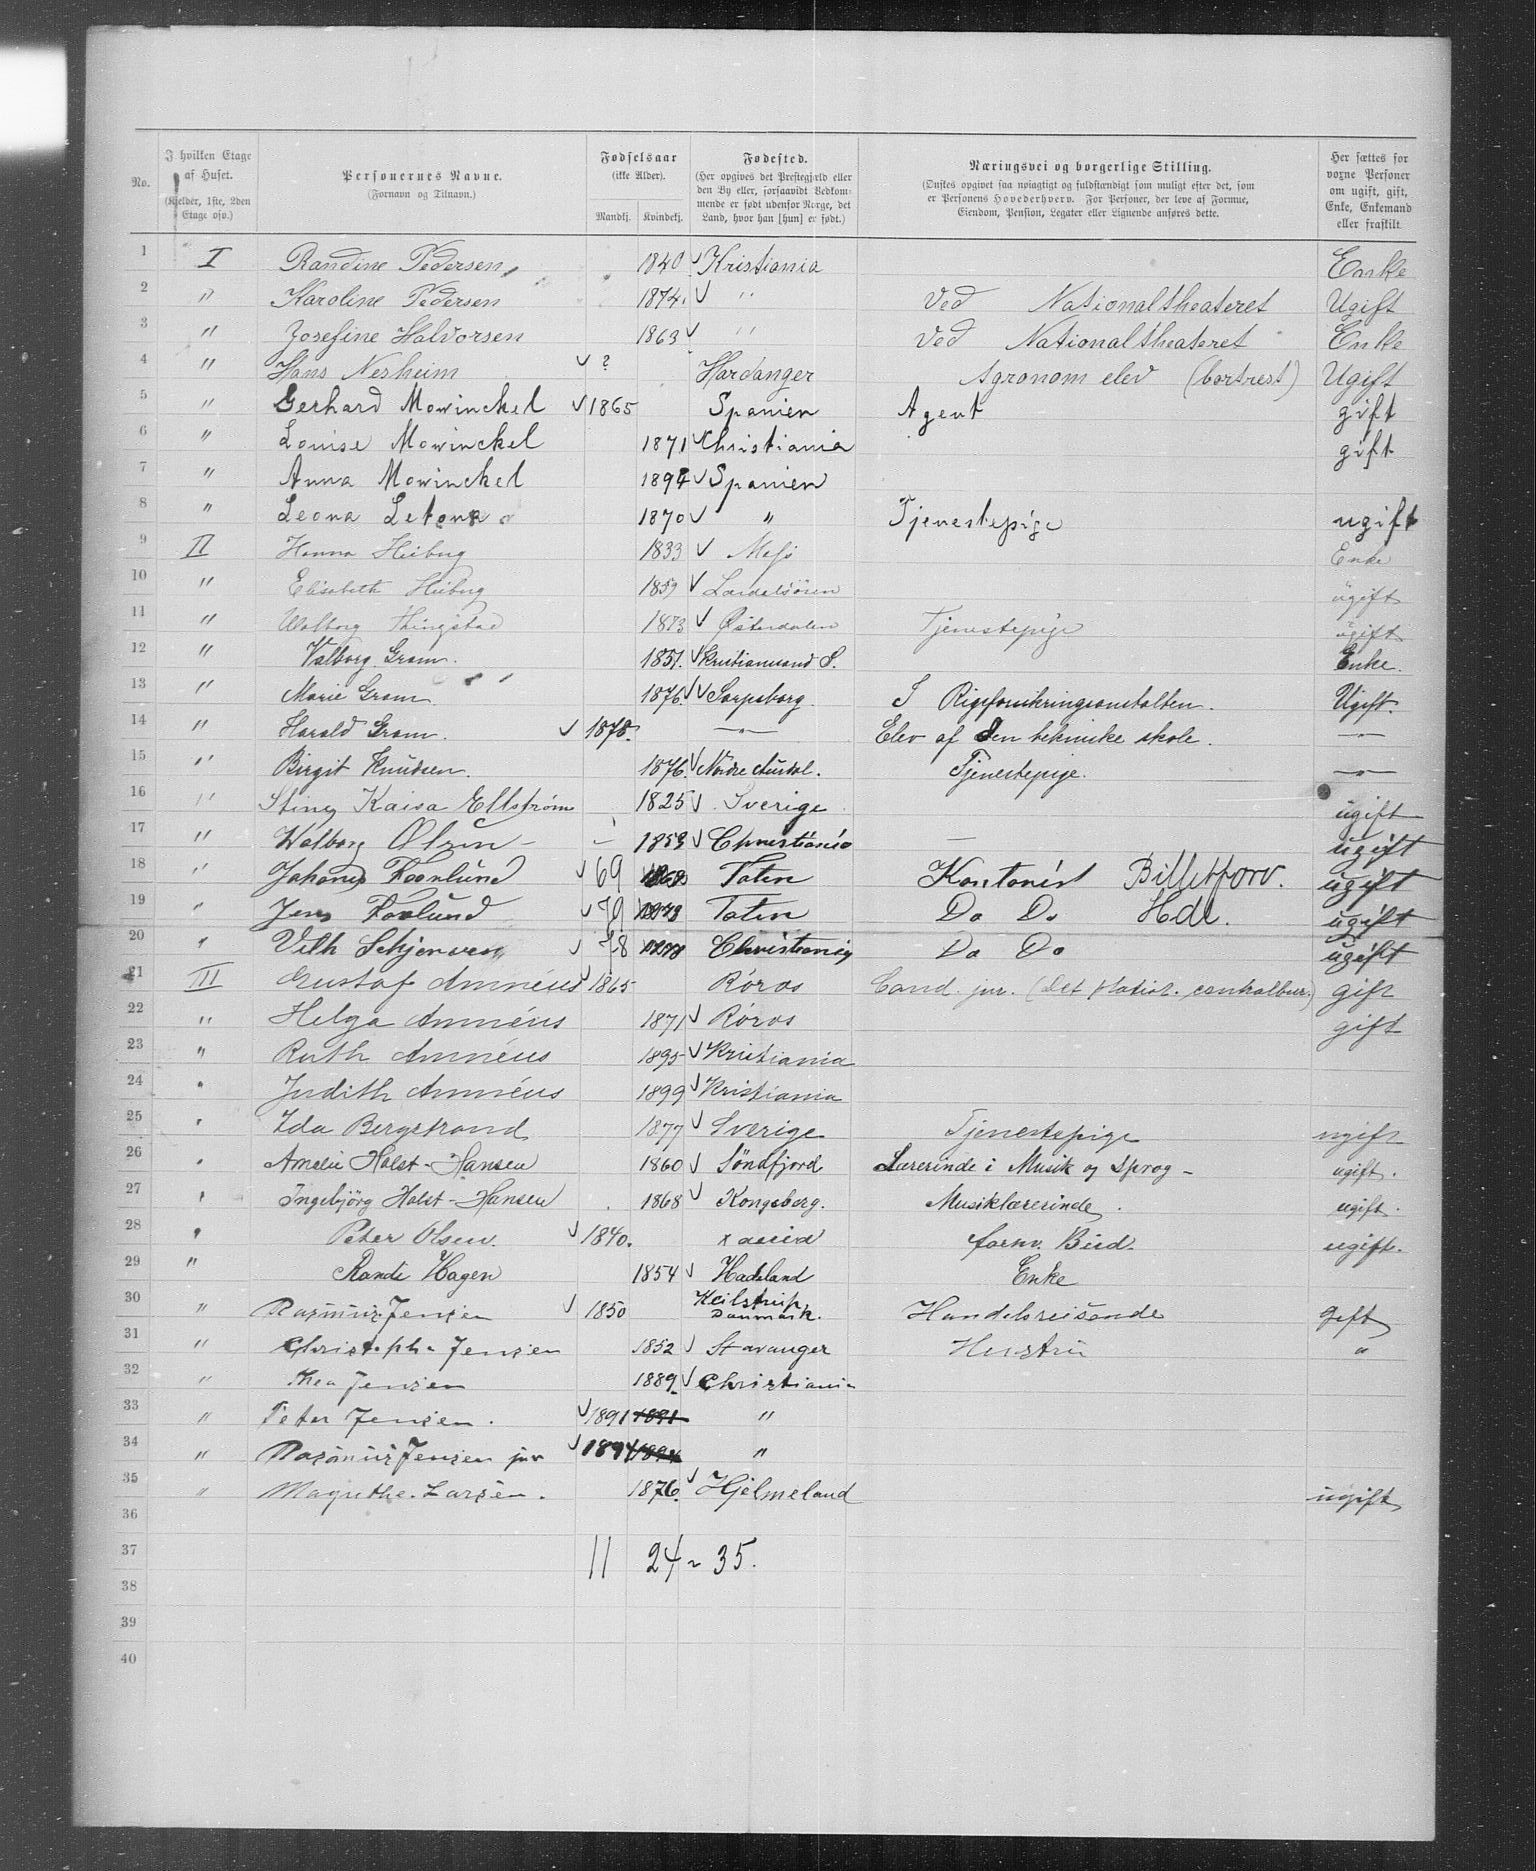 No. | I hvilken Etage af Huset. (Kjelder, 1ste, 2den Etage osv.) | Personernes Navne. (Fornavn og Tilnavn.) | Fødselsaar (ikke Alder). Mandkj. Kvindekj. | Fødested. (Her opgives det Prestegjæld eller den By eller, forsaavidt Vedkommende er født udenfor Norge, det Land, hvor han [hun] er født.) | Næringsvei og borgerlige Stilling. (Ønskes opgivet saa nøiagtigt og fuldstændigt som muligt efter det, som er Personens Hovederhverv. For Personer, der leve af Formue, Eiendom, Pension, Legater eller Lignende anføres dette.) | Her sættes for voxne Personer om ugift, gift, Enke, Enkemand eller fraskilt.
1 I Randine Pedersen 1840 Kristiania Enke
2 " Karoline Pedersen 1874 " Ved Nationaltheateret Ugift
3 " Josefine Halvorsen 1863 " Ved Nationaltheateret Enke
4 " Hans Nesheim ? Hardanger Agronom elev (bortrest) Ugift
5 " Gerhard Mowinckel 1865 Spanien Agent gift
6 " Louise Mowinckel 1871 Christiania gift
7 " Anna Mowinckel 1894 Spanien
8 " Leona Letona 1870 " Tjenestepige ugift
9 II Hanna Heiberg 1833 Enke
10 " Elisabeth Heiberg 1859 Lærdalsören ugift
11 " Walborg 1873 Østerdalen Tjenestepige ugift
12 " Valborg Gram. 1851. Kristianssand S. Enke.
13 " Marie Gram 1876. Sarpsborg. I Rigsforsikringsanstalten. Ugift.
14 " Harald Gram. 1878. —"— Elev af den tekniske skole. —"—
15 " Birgit Knudsen. 1876. Nordre Aurdal. Tjenestepige. —"—
16 " Stina Kaisa Ellström 1825 Sverige ugift
17 " Walborg Olsen - 1853 Christiania — ugift
18 " Johannes 69 Toten Kontorist Billetforv. ugift
19 " Jens 1878 Toten Do Do Hdl. ugift
20 " Vilh Schjerven 78 1878 Christiania Do Do ugift
21 III Gustaf Amnéus 1865 Röros Cand. jur. (Det statist. centralbur.) gift
22 " Helga Amnéus 1871 Röros gift
23 " Ruth Amnéus 1895 Kristiania
24 " Judith Amnéus 1899 Kristiania
25 " Ida Bergstrand 1877 Sverige Tjenestepige ugift
26 " Amelie Holst-Hansen 1860 Söndfjord Lærerinde i Musik og Sprog - ugift.
27 " Ingebjörg Holst-Hansen 1868 Kongsberg. Musiklærerinde. ugift.
28 " Peter Olsen. 1840. x forhv. ugift.
29 " Randi Hagen 1854 Hadeland Enke
30 " Rasmus Jensen 1850 Danmark. Handelsreisende Gift
31 " Christopha Jensen 1852 Stavanger Hustru "
32 " Thea Jensen 1889 Christiania
33 " Peter Jensen. 1891 1891 "
34 " Rasmus Jensen jnr 1894 1894 "
35 " Magrethe Larsen. 1876. Hjelmeland ugift
36
37 11 24 ~ 35.
38
39
40